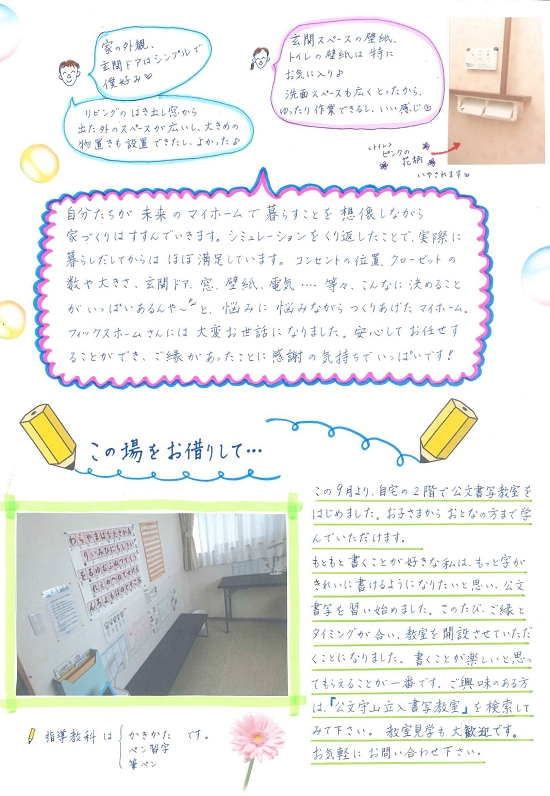 家の外観、
玄関ドアはシンプルで
僕好み♡
リビングのはき出し窓から
出た外のスペースが広いし、大きめの
物置きも設置できたし、よかった♪
玄関スペースの壁紙、
トイレの壁紙は特に
お気に入り♪
洗面スペースも広くとったから、
ゆったり作業できるし、いい感じ♡
〈トイレ〉
ピンクの
花柄
いやされます
自分たちが未来のマイホームで暮らすことを想像しながら
家づくりはすすんでいきます。シミュレーションをくり返したことで、実際に
暮らしだしてからは ほぼ満足しています。コンセントの位置、クローゼットの
数や大きさ、玄関ドア、窓、壁紙、電気‥‥等々、こんなに決めること
がいっぱいあるんや〜と、悩みに悩みながらつくりあげたマイホーム。
フィックスホームさんには大変お世話になりました。安心してお任せす
ることができ、ご縁があったことに感謝の気持ちでいっぱいです!
この場をお借りして…
この9月より、自宅の2階で公文書写教室を
はじめました。お子さまからおとなの方まで学
んでいただけます。
もともと書くことが好きな私は、もっと字が
きれいに書けるようになりたいと思い、公文
書写を習い始めました。このたび、ご縁と
タイミングが合い、教室を開設させていただ
くことになりました。書くことが楽しいと思っ
てもらえることが一番です。ご興味のある方
は、「公文守山立入書写教室」を検索して
みて下さい。教室見学も大歓迎です。
お気軽にお問い合わせ下さい。
わらやまはなたさかあ
りいみひにちしきい
指導教科は かきかた です。
ペン習字
筆ペン